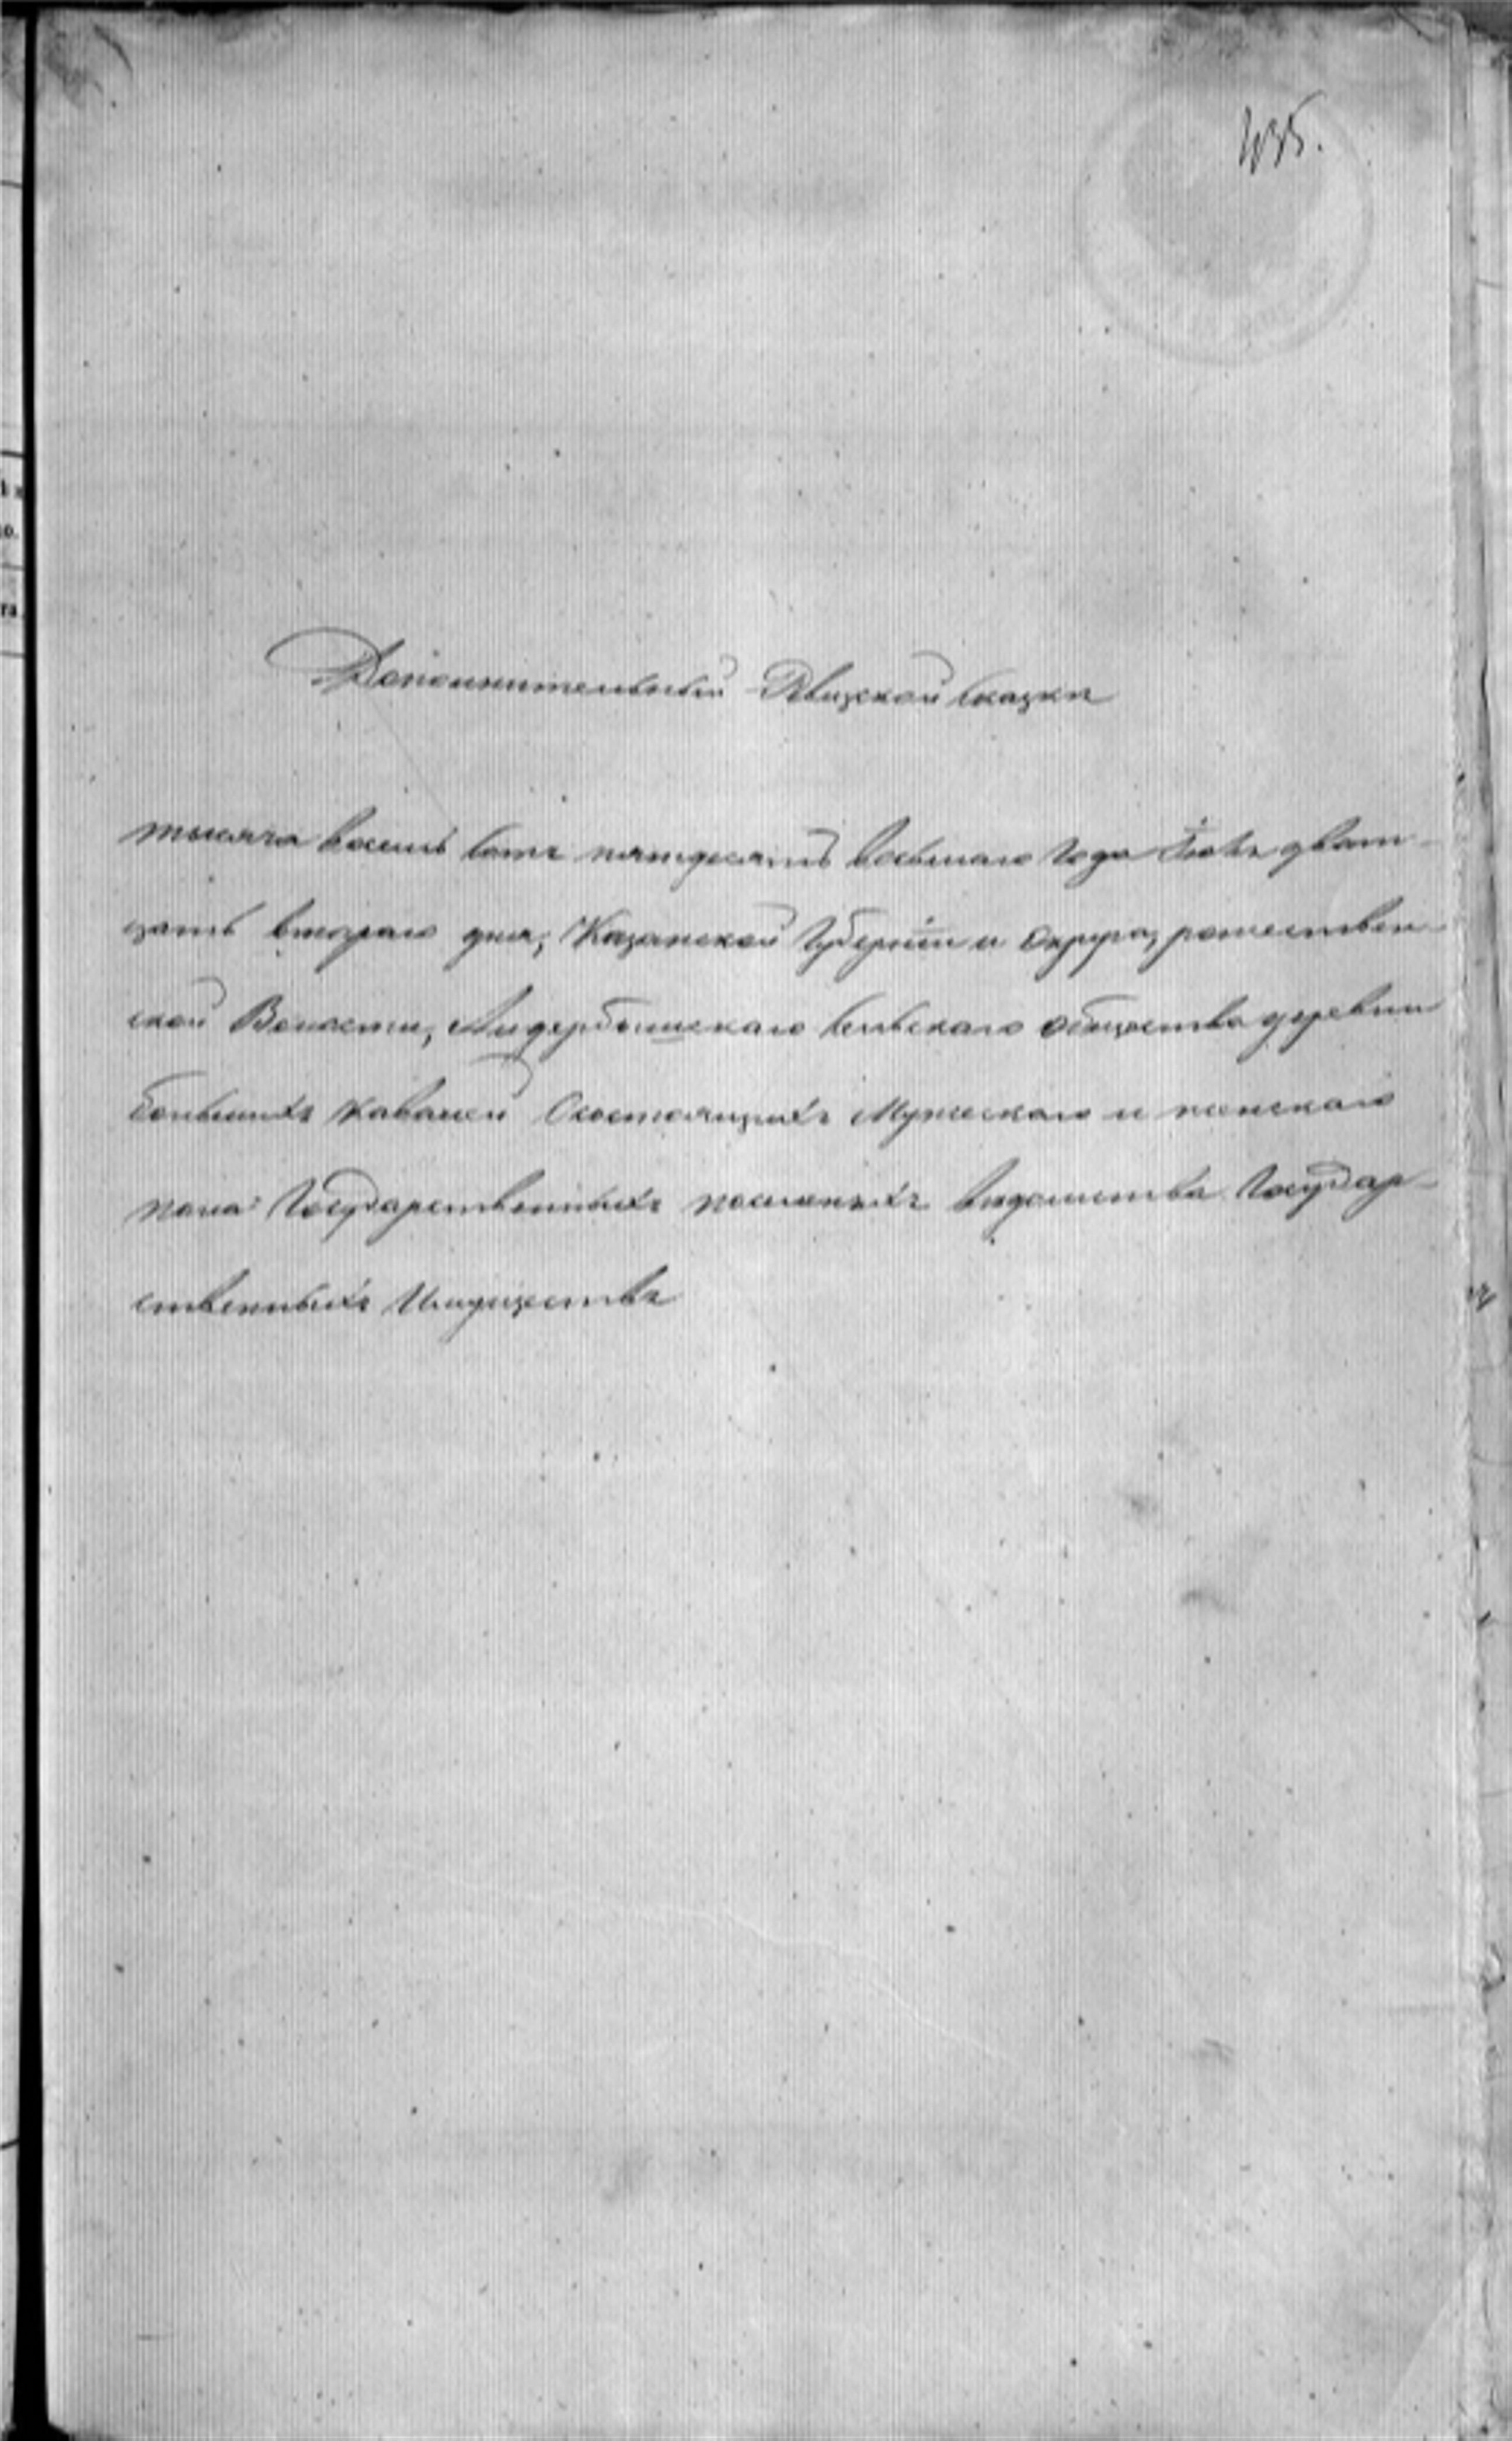 435.
Дополнительный Ревизской сказки
тысяча восемь сотъ пятдесятъ восьмаго года Іюня дват-
цать втораго дня, Казанской Губерніи и Округа, рожествен-
ской Волости, сельскаго общества деревни
большихъ Кабаней Осостоящихъ Мужескаго и женскаго
пола Государственныхъ поселянъ ведомства Государ-
ственныхъ Имуществъ